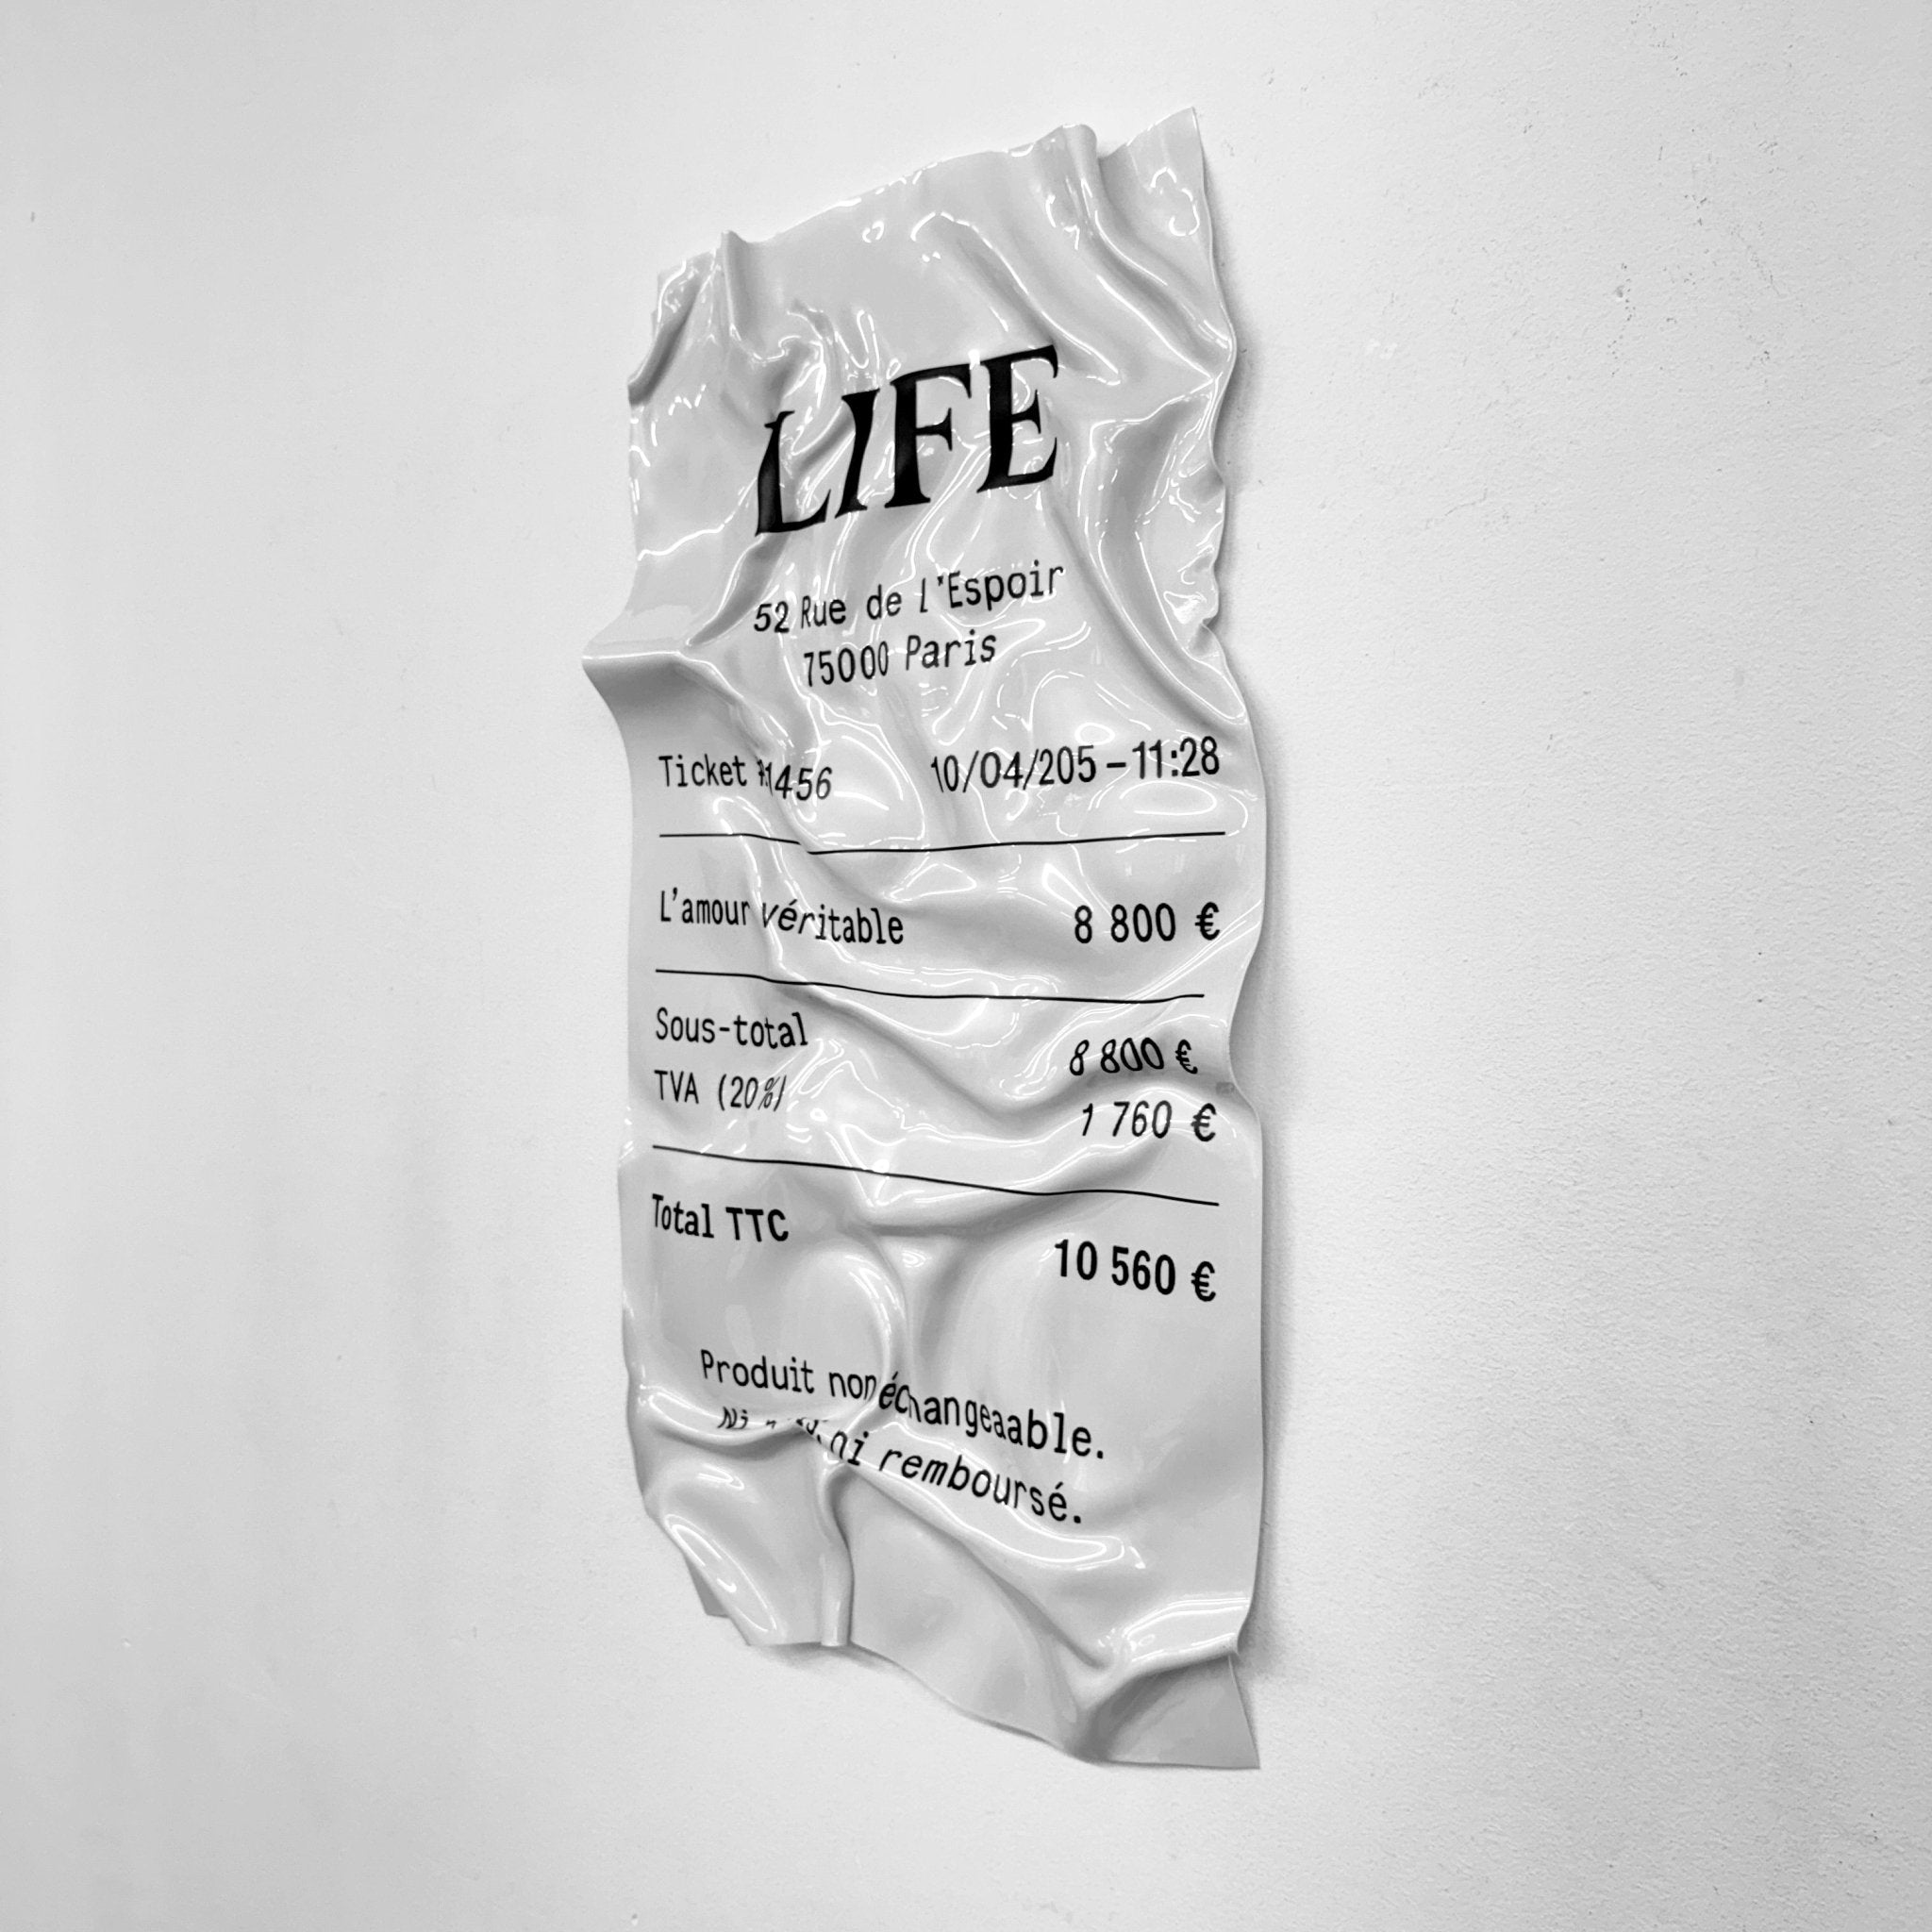 LIFE
52 Rue de l'Espoir
75000 Paris
Ticket #1456 10/04/205 – 11:28
L'amour véritable 8 800 €
Sous-total 8 800 €
TVA (20%) 1 760 €
Total TTC 10 560 €
Produit non échangeaable.
Ni ni remboursé.